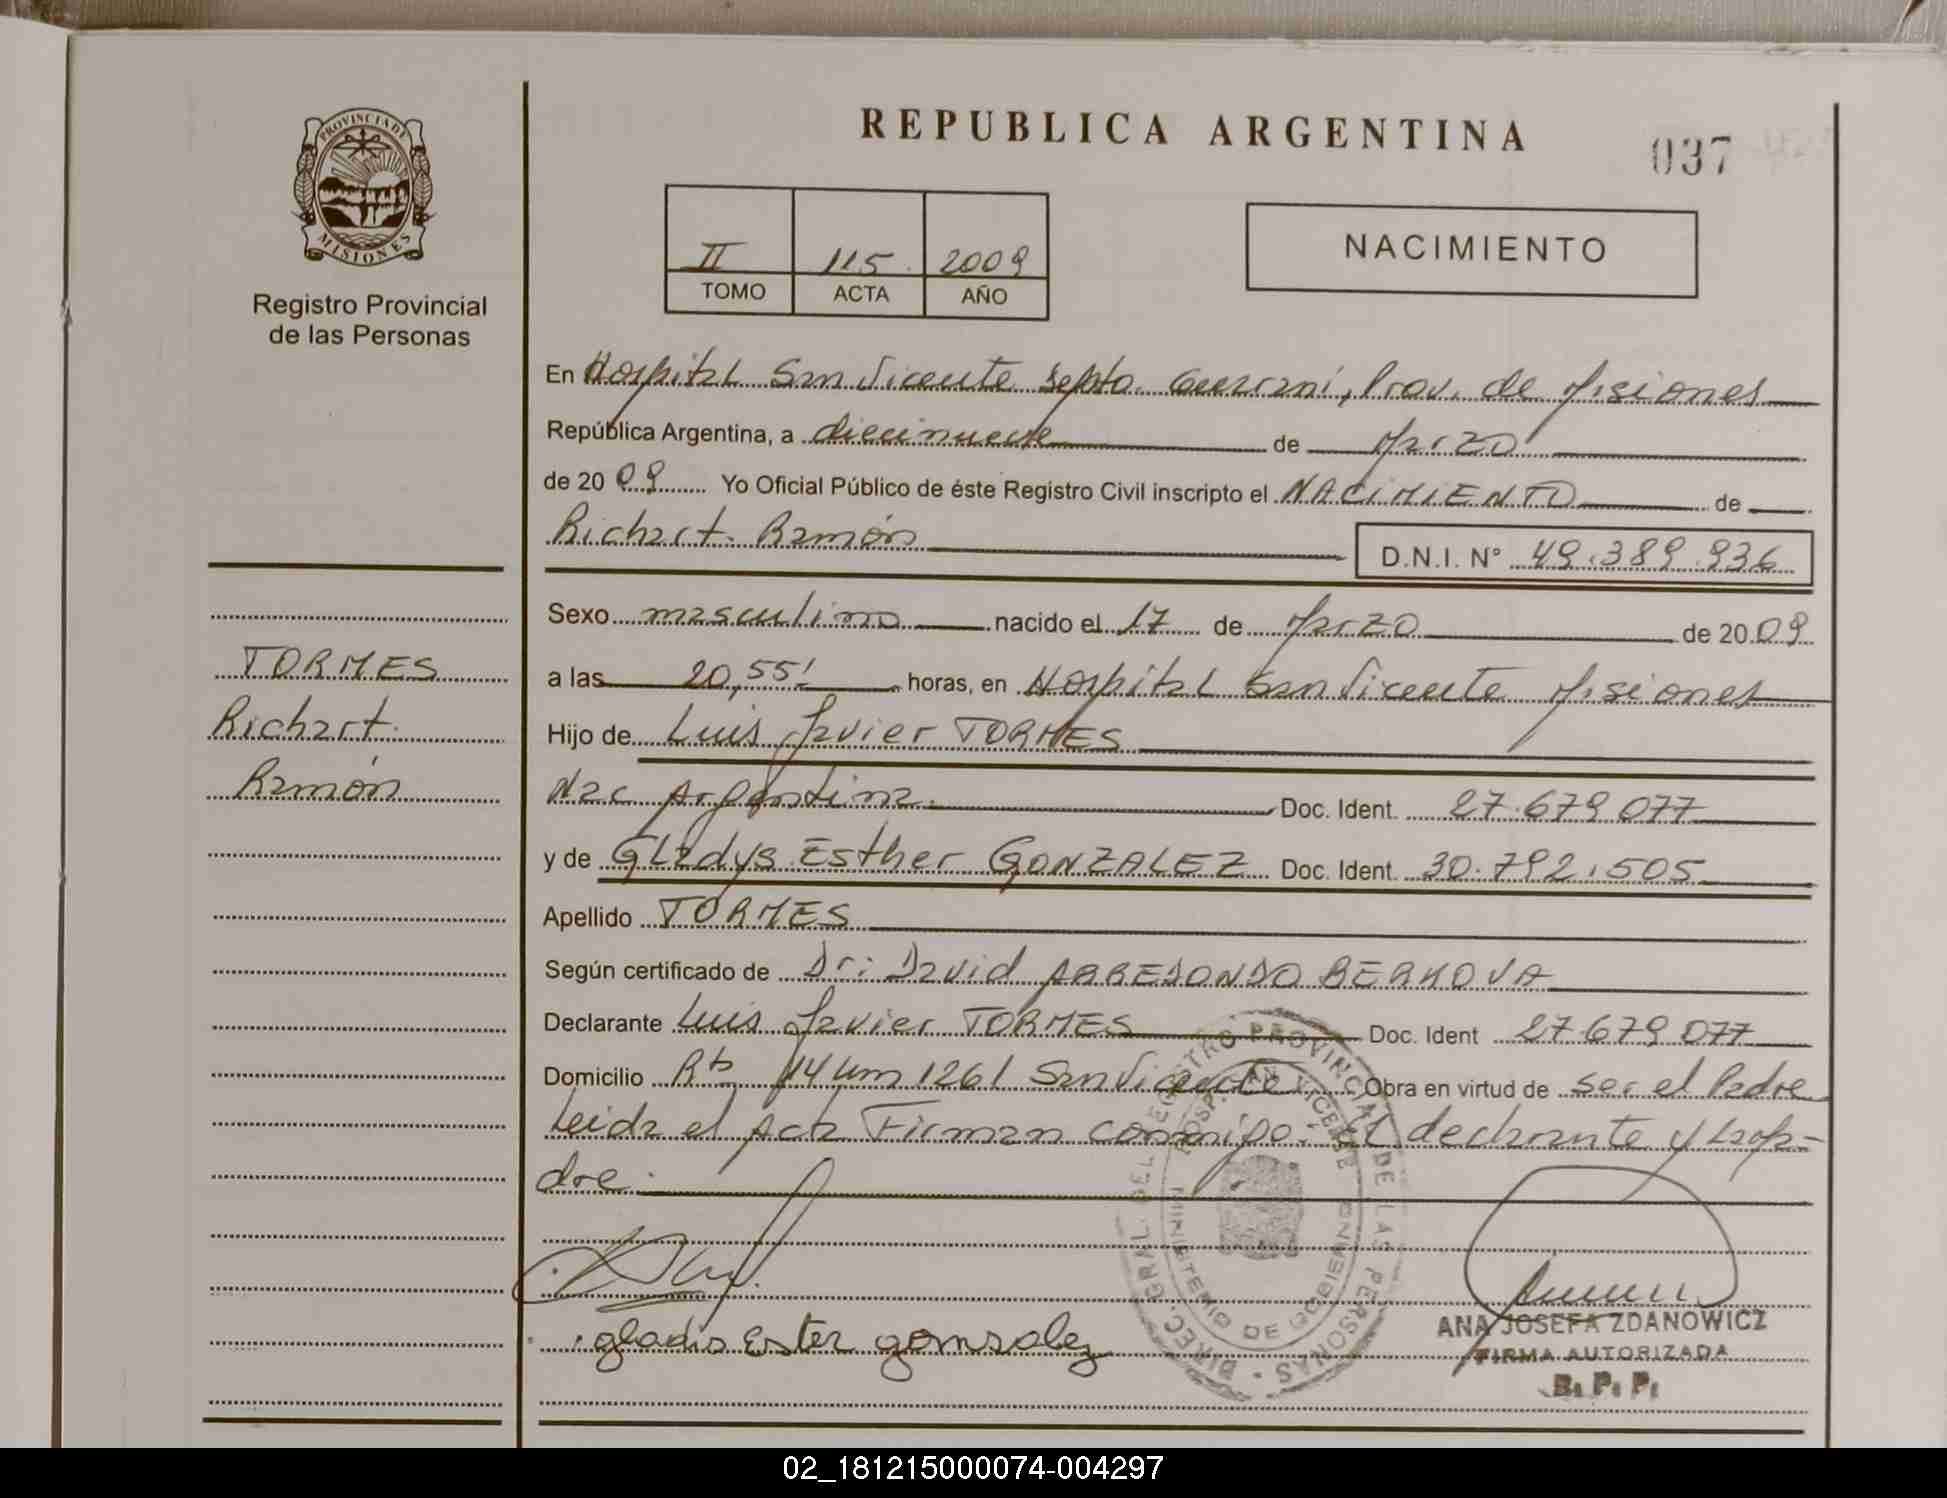 REPUBLICA ARGENTINA
037
PROVINCIA DE
MISIONES
Registro Provincial
de las Personas
II 115 2009
TOMO ACTA AÑO
NACIMIENTO
En Hospital San Vicente Depto. Guaraní, Prov. de Misiones
República Argentina, a diecinueve de Marzo
de 2009 Yo Oficial Público de éste Registro Civil inscripto el NACIMIENTO de
Richart Ramón D.N.I. N° 49.389.936
Sexo masculino nacido el 17 de Marzo de 2009
a las 20,55' horas, en Hospital San Vicente Misiones
Hijo de Luis Javier TORMES
Nac Argentina. Doc. Ident. 27.679.077
y de GLadys Esther GONZALEZ Doc. Ident. 30.792.505
Apellido TORMES
Según certificado de Dr: David ARREDONDO BERKOVA
Declarante Luis Javier TORMES Doc. Ident 27.679.077
Domicilio Rta 14 Km 1261 San Vicente Obra en virtud de ser el Padre
Leida el Acta Firman conmigo. el declarante y la Ma-
dre.
TORMES
Richart
Ramón
gladis Ester gonsalez
DIREC. GRAL. DEL REGISTRO PROVINCIAL DE LAS PERSONAS
HOSP. SAN VICENTE
MINISTERIO DE GOBIERNO
ANA JOSEFA ZDANOWICZ
FIRMA AUTORIZADA
R. P. P.
02_181215000074-004297